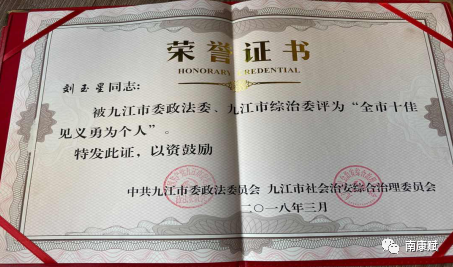 荣誉证书
HONORARY CREDENTIAL
刘玉星同志：
被九江市委政法委、九江市综治委评为“全市十佳
见义勇为个人”。
特发此证，以资鼓励
中共九江市委政法委员会 九江市社会治安综合治理委员会
二〇一八年三月
南康赋